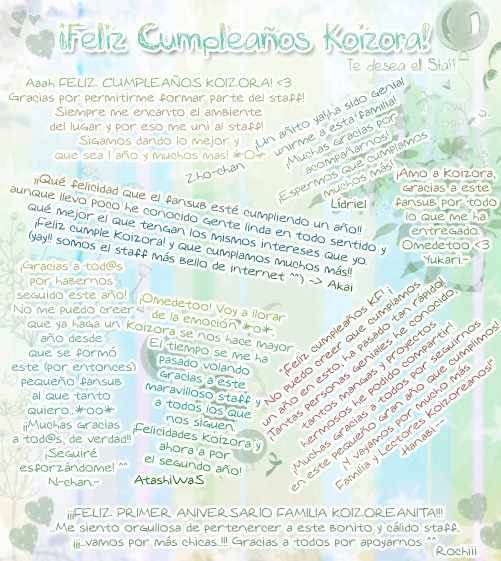 ¡Feliz Cumpleaños Koizora!
1
Te desea el Staff
Aaah FELIZ CUMPLEAÑOS KOIZORA! <3
Gracias por permitirme formar parte del staff!
Siempre me encanto el ambiente
del lugar y por eso me uni al staff!
Sigamos dando lo mejor y
que sea 1 año y muchos mas! *O*
Zho-chan
¡Un añito ya! ha sido genial
unirme a esta familia!
¡Muchas gracias por
acompañarnos!
¡Esperamos que cumplamos
muchos más!
Lidriel
¡Amo a Koizora,
gracias a este
fansub por todo
lo que me ha
entregado.
Omedetoo <3
Yukari.-
¡¡Qué felicidad que el fansub esté cumpliendo un año!!
aunque llevo poco he conocido gente linda en todo sentido y
qué mejor el que tengan los mismos intereses que yo.
¡Feliz cumple Koizora! y que cumplamos muchos más!!
(yay!! somos el staff más bello de internet ^^) -> Akai
¡Gracias a tod@s
por habernos
seguido este año!
No me puedo creer
que ya haga un
año desde
que se formó
este (por entonces)
pequeño fansub
al que tanto
quiero. *oo*
¡¡Muchas gracias
a tod@s, de verdad!!
¡Seguiré
esforzándome! ^^
N-chan.-
¡Omedetoo! Voy a llorar
de la emoción *o*.
Koizora se nos hace mayor
El tiempo se me ha
pasado volando
gracias a este
maravilloso staff y
a todos los que
nos siguen.
¡Felicidades Koizora y
ahora a por
el segundo año!
AtashiWaS
"Feliz cumpleaños KF" ¡
No puedo creer que cumplamos
un año en esto, ha pasado tan rápido!
Tantas personas geniales he conocido,
tantos mangas y proyectos
hermosos he podido compartir!
¡Muchas gracias a todos por seguirnos
en este pequeño gran año que cumplimos
¡y vayamos por mucho más
Familia y Lectores Koizoreanos!"
Hanabi.-
¡¡¡FELIZ PRIMER ANIVERSARIO FAMILIA KOIZOREANITA!!!
...Me siento orgullosa de pertenercer a este bonito y cálido staff.
¡¡¡...vamos por más chicas...!!! Gracias a todos por apoyarnos ^^
Rochiii